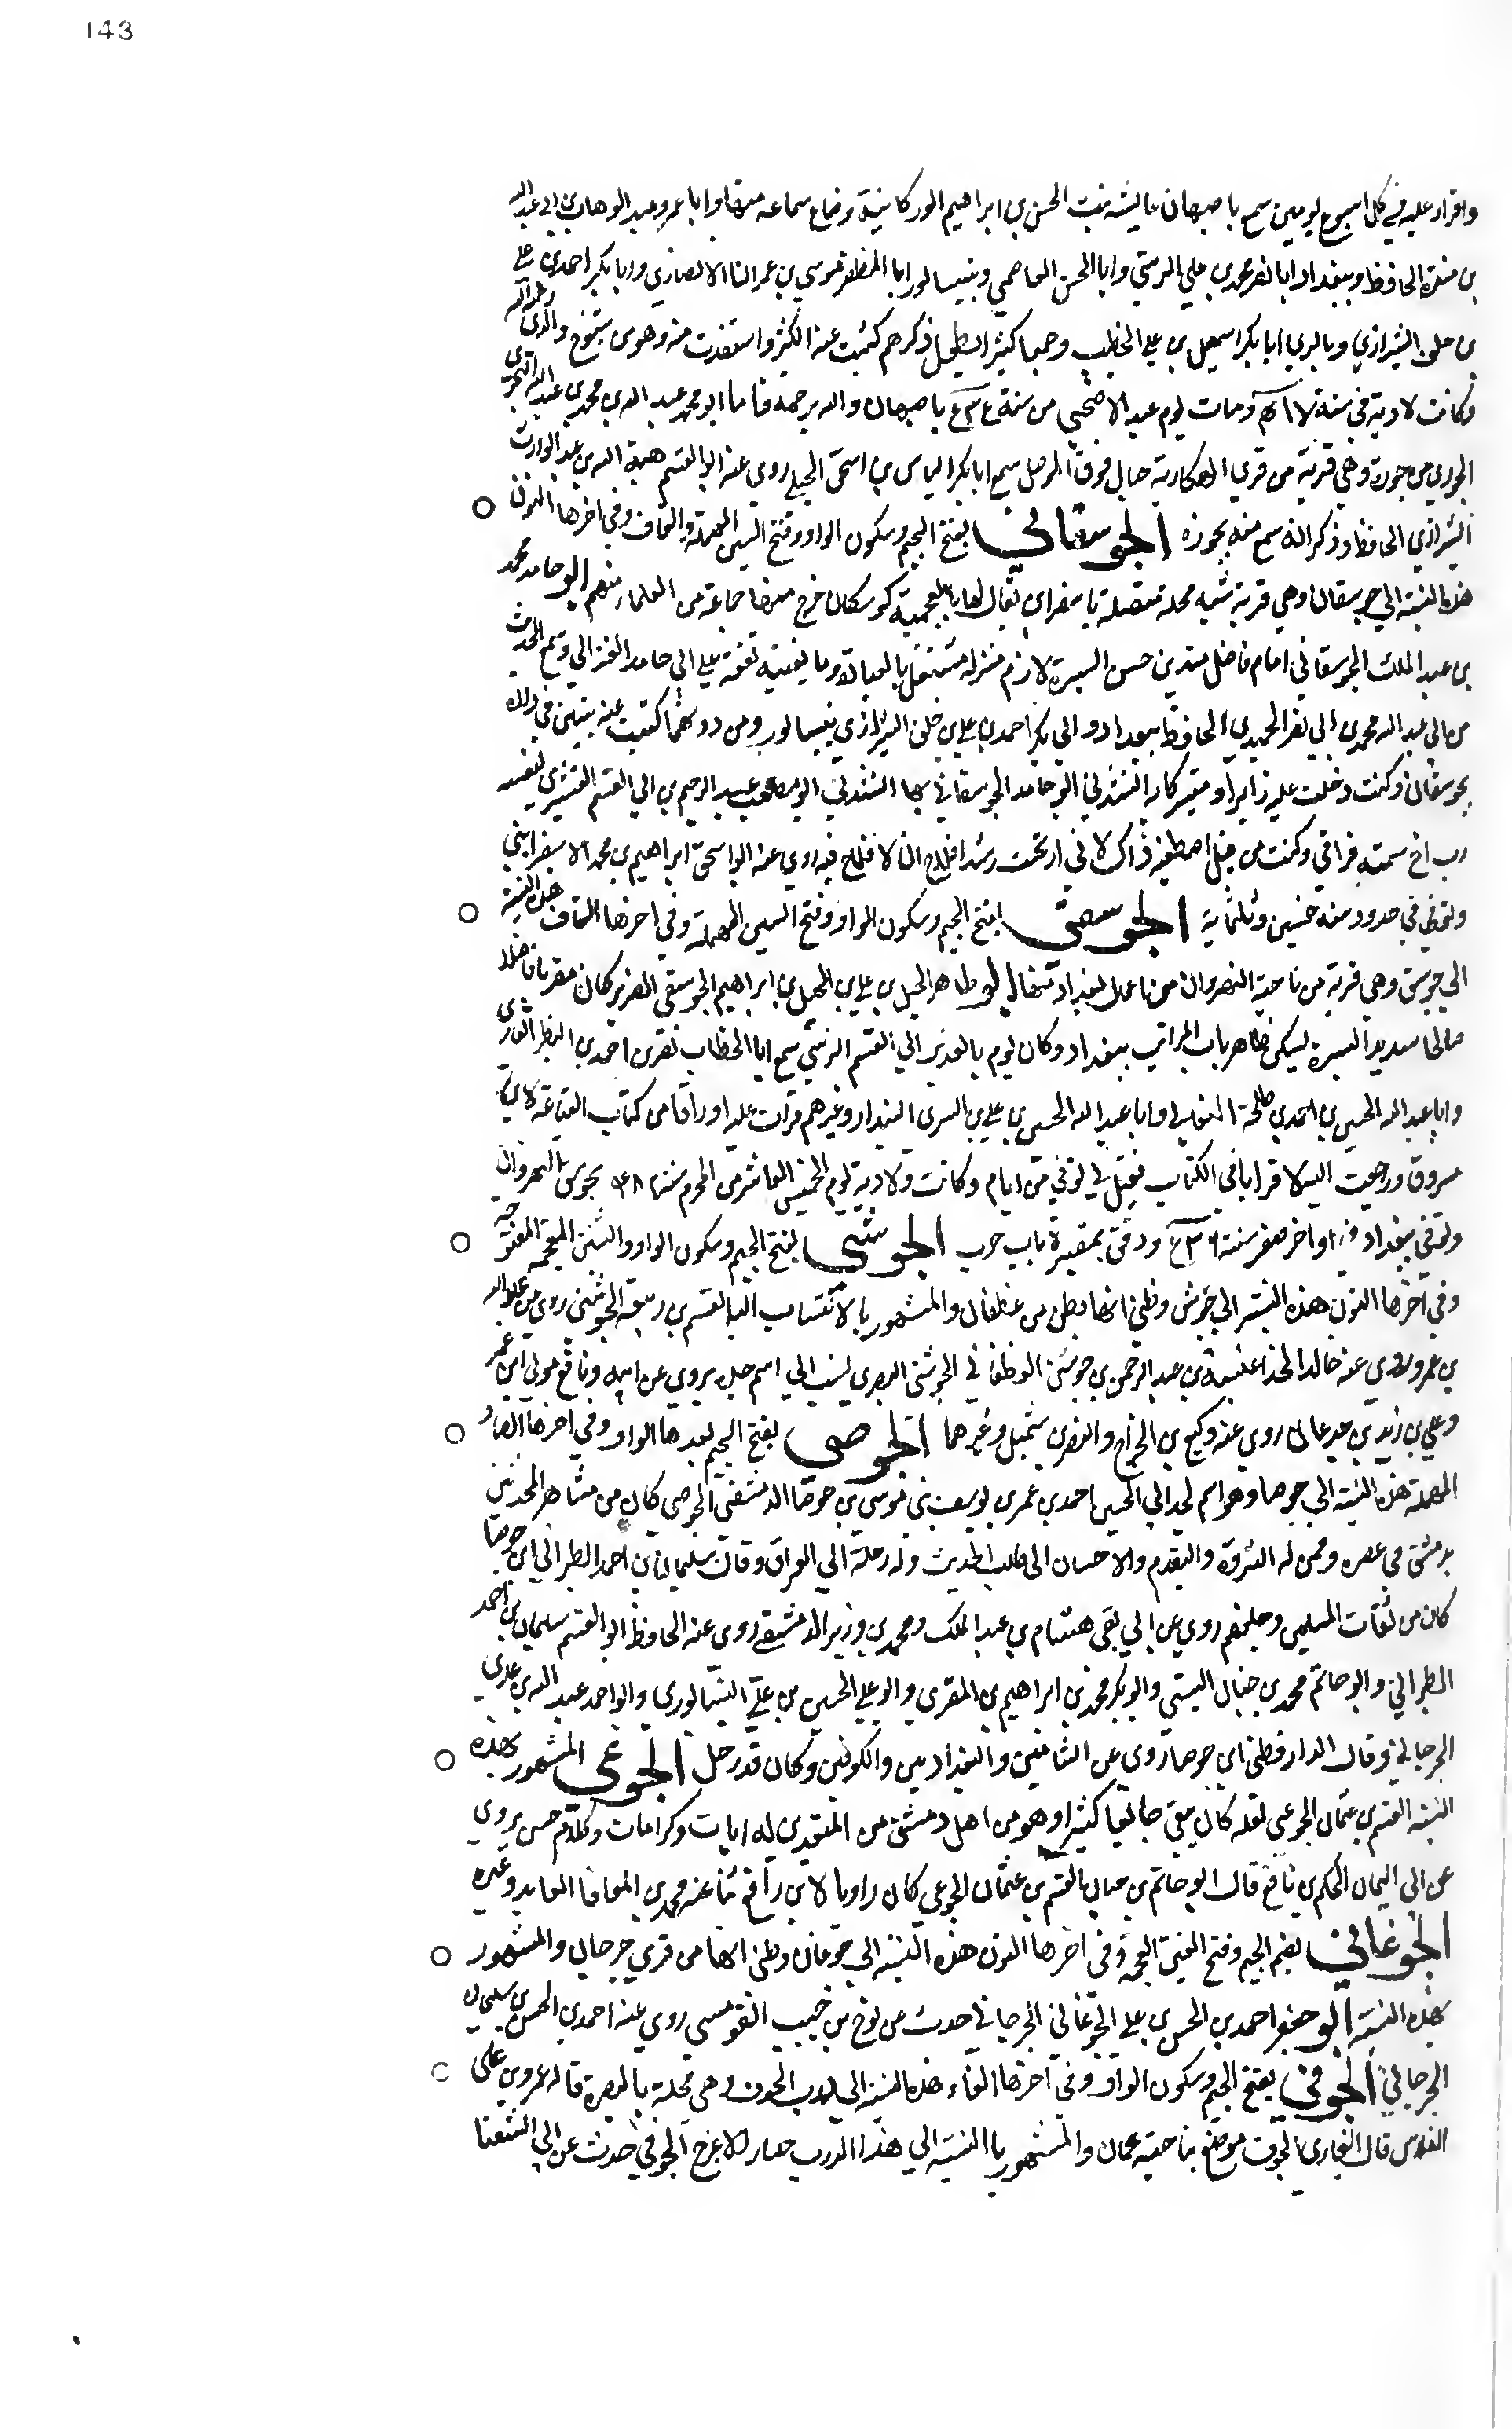 143
واقراء عليه في كل اسبوع يومين سمع باصبهان عايشه بنت الحسن بن ابراهيم الوركانية وضاع سماعه منها وابا عمرو عبد الوهاب بن ابي عبد الله
بن مندة الحافظ وببغداد ابا نصر محمد بن علي الزينبي وابا الحسن العاصمي وبنيسابور ابا المظفر موسي بن عمران الانصاري وابا بكر احمد بن علي
بن خلف الشيرازي وبالري ابا بكر اسمعيل بن علي الخطيب وجمعا كثيرا يطول ذكرهم كتبت عنه الكثير واستفدت منه وهو من شيوخ والدي رحمه الله
وكانت ولادته في سنة ومات يوم عيد الاضحي من سنة باصبهان والله يرحمه فاما ابو محمد عبد الله بن محمد بن عبد الله
الجوري من جورة وهي قرية من قري الهكارية جبال فوق الموصل سمع ابا بكر الياس بن اسحق الجبلي روي عنه ابو القسم هبة الله بن عبد الوارث
الشيرازي الحافظ وذكر انه سمع منه بجورة الجوسقاني بفتح الجيم وسكون الواو وفتح السين المهملة والقاف وفي اخرها النون
هذه النسبة الي جوسقان وهي قرية شبه محلة متصلة باسفراين يقال لها بالعجمية كوسكان خرج منها جماعة من العلماء منهم ابو حامد محمد
بن عبد الملك الجوسقاني امام فاضل متدين حسن السيرة لازم منزله مشتغل بالعبادة وما يعنيه تفقه علي ابي حامد الغزالي وسمع الحديث
من ابي عبد الله محمد بن ابي نصر الحميدي الحافظ ببغداد وابي بكر احمد بن علي بن خلف الشيرازي بنيسابور ومن دونهما كتبت عنه بيتين في داره
بجوسقان وكنت دخلت عليه زايرا ومتبركا به انشدني ابو حامد الجوسقاني بها انشدني ابو نصر عبد الرحيم بن ابي القسم القشيري لنفسه
رب اخ سمته فراقي وكنت من قبل اصطفيه ذاك لاني ارتجيت رشدا فلاح ان لا فلاح فيه روي عنه ابو اسحق ابراهيم بن محمد الاسفرايني
وتوفي في حدود سنة خمسين وثلثماية الجوسقي بفتح الجيم وسكون الواو وفتح السين المهملة وفي اخرها القاف هذه النسبة
الي جوسق وهي قرية من ناحية النهروان من اعمال بغداد منها ابو طاهر الخليل بن علي بن الخليل بن ابراهيم الجوسقي الضرير كان مقريا فاضلا
صالحا سديد السيرة يسكن ظاهر باب المراتب ببغداد وكان يوم بالوزير ابي القسم الزينبي سمع ابا الخطاب نصر بن احمد بن البطر القاري
وابا عبد الله الحسين بن احمد بن طلحة النعالي وابا عبد الله الحسين بن علي بن البسري البندار وغيرهم قرات عليه اوراقا من كتاب القناعة لابن
مسروق ورجعت اليه لاقرا باقي الكتاب فقيل لي توفي من ايام وكانت ولادته يوم الخميس العاشر من المحرم سنة بجوسق النهروان
وتوفي ببغداد في اواخر صفر سنة ودفن بمقبرة باب حرب الجوشني بفتح الجيم وسكون الواو والشين المعجمة المفتوحة
وفي اخرها النون هذه النسبة الي جوشن وظني انها بطن من غطفان والمشهور بالانتساب اليها القسم بن ربيعة الجوشني روي عن عبد الله
بن عمرو روي عنه خالد الحذا عيينة بن عبد الرحمن بن جوشن الغطفاني الجوشني البصري نسب الي اسم جده يروي عن ابيه ونافع مولي ابن عمر
وعلي بن زيد بن جدعان روي عنه وكيع بن الجراح والنضر بن شميل وغيرهما الجوصي بفتح الجيم بعدها الواو وفي اخرها الصاد
المهملة هذه النسبة الي جوصا وهو اسم لجد ابي الحسن احمد بن عمير بن يوسف بن موسي بن جوصا الدمشقي الجوصي كان من مشاهير المحدثين
بدمشق في عصره وممن له الثروة والتقدم والاحسان الي طلبة الحديث وله رحلة الي العراق وقال سليمان بن احمد الطبراني ابن جوصا
كان من ثقات المسلمين وجلتهم روي عن ابي تقي هشام بن عبد الملك ومحمد بن وزير الدمشقي روي عنه الحافظ ابو القسم سليمان بن احمد
الطبراني وابو حاتم محمد بن حبان البستي وابو بكر محمد بن ابراهيم بن المقري وابو علي الحسين بن علي النيسابوري وابو احمد عبد الله بن عدي
الجرجاني وقال الدارقطني ابن جوصا روي عن الشاميين والبغداديين والكوفيين وكان قد رحل الجوعي المشهور بهذه
النسبة القسم بن عثمان الجوعي لعله كان يبقي جايعا كثيرا وهو من اهل دمشق من المتعبدين له ايات وكرامات وكلام حسن يروي
عن ابي اليمان الحكم بن نافع قال ابو حاتم بن حبان القسم بن عثمان الجوعي كان راويا لابن رافع ثنا عنه محمد بن المعافا العابد وغيره
الجوغاني بضم الجيم وفتح الغين المعجمة وفي اخرها النون هذه النسبة الي جوغان وظني انها من قري جرجان والمشهور
بهذه النسبة ابو جعفر احمد بن الحسن بن علي الجوغاني الجرجاني حدث عن نوح بن حبيب القومسي روي عنه احمد بن الحسن بن سليمان
الجرجاني الجوفي بفتح الجيم وسكون الواو وفي اخرها الفاء هذه النسبة الي درب الجوف وهي محلة بالبصرة قاله عمرو بن علي
الفلاس قال البخاري الجوف موضع بناحية عمان والمشهور بالنسبة الي هذا الدرب الاعرج الجوفي حدث عن ابي الشعثا